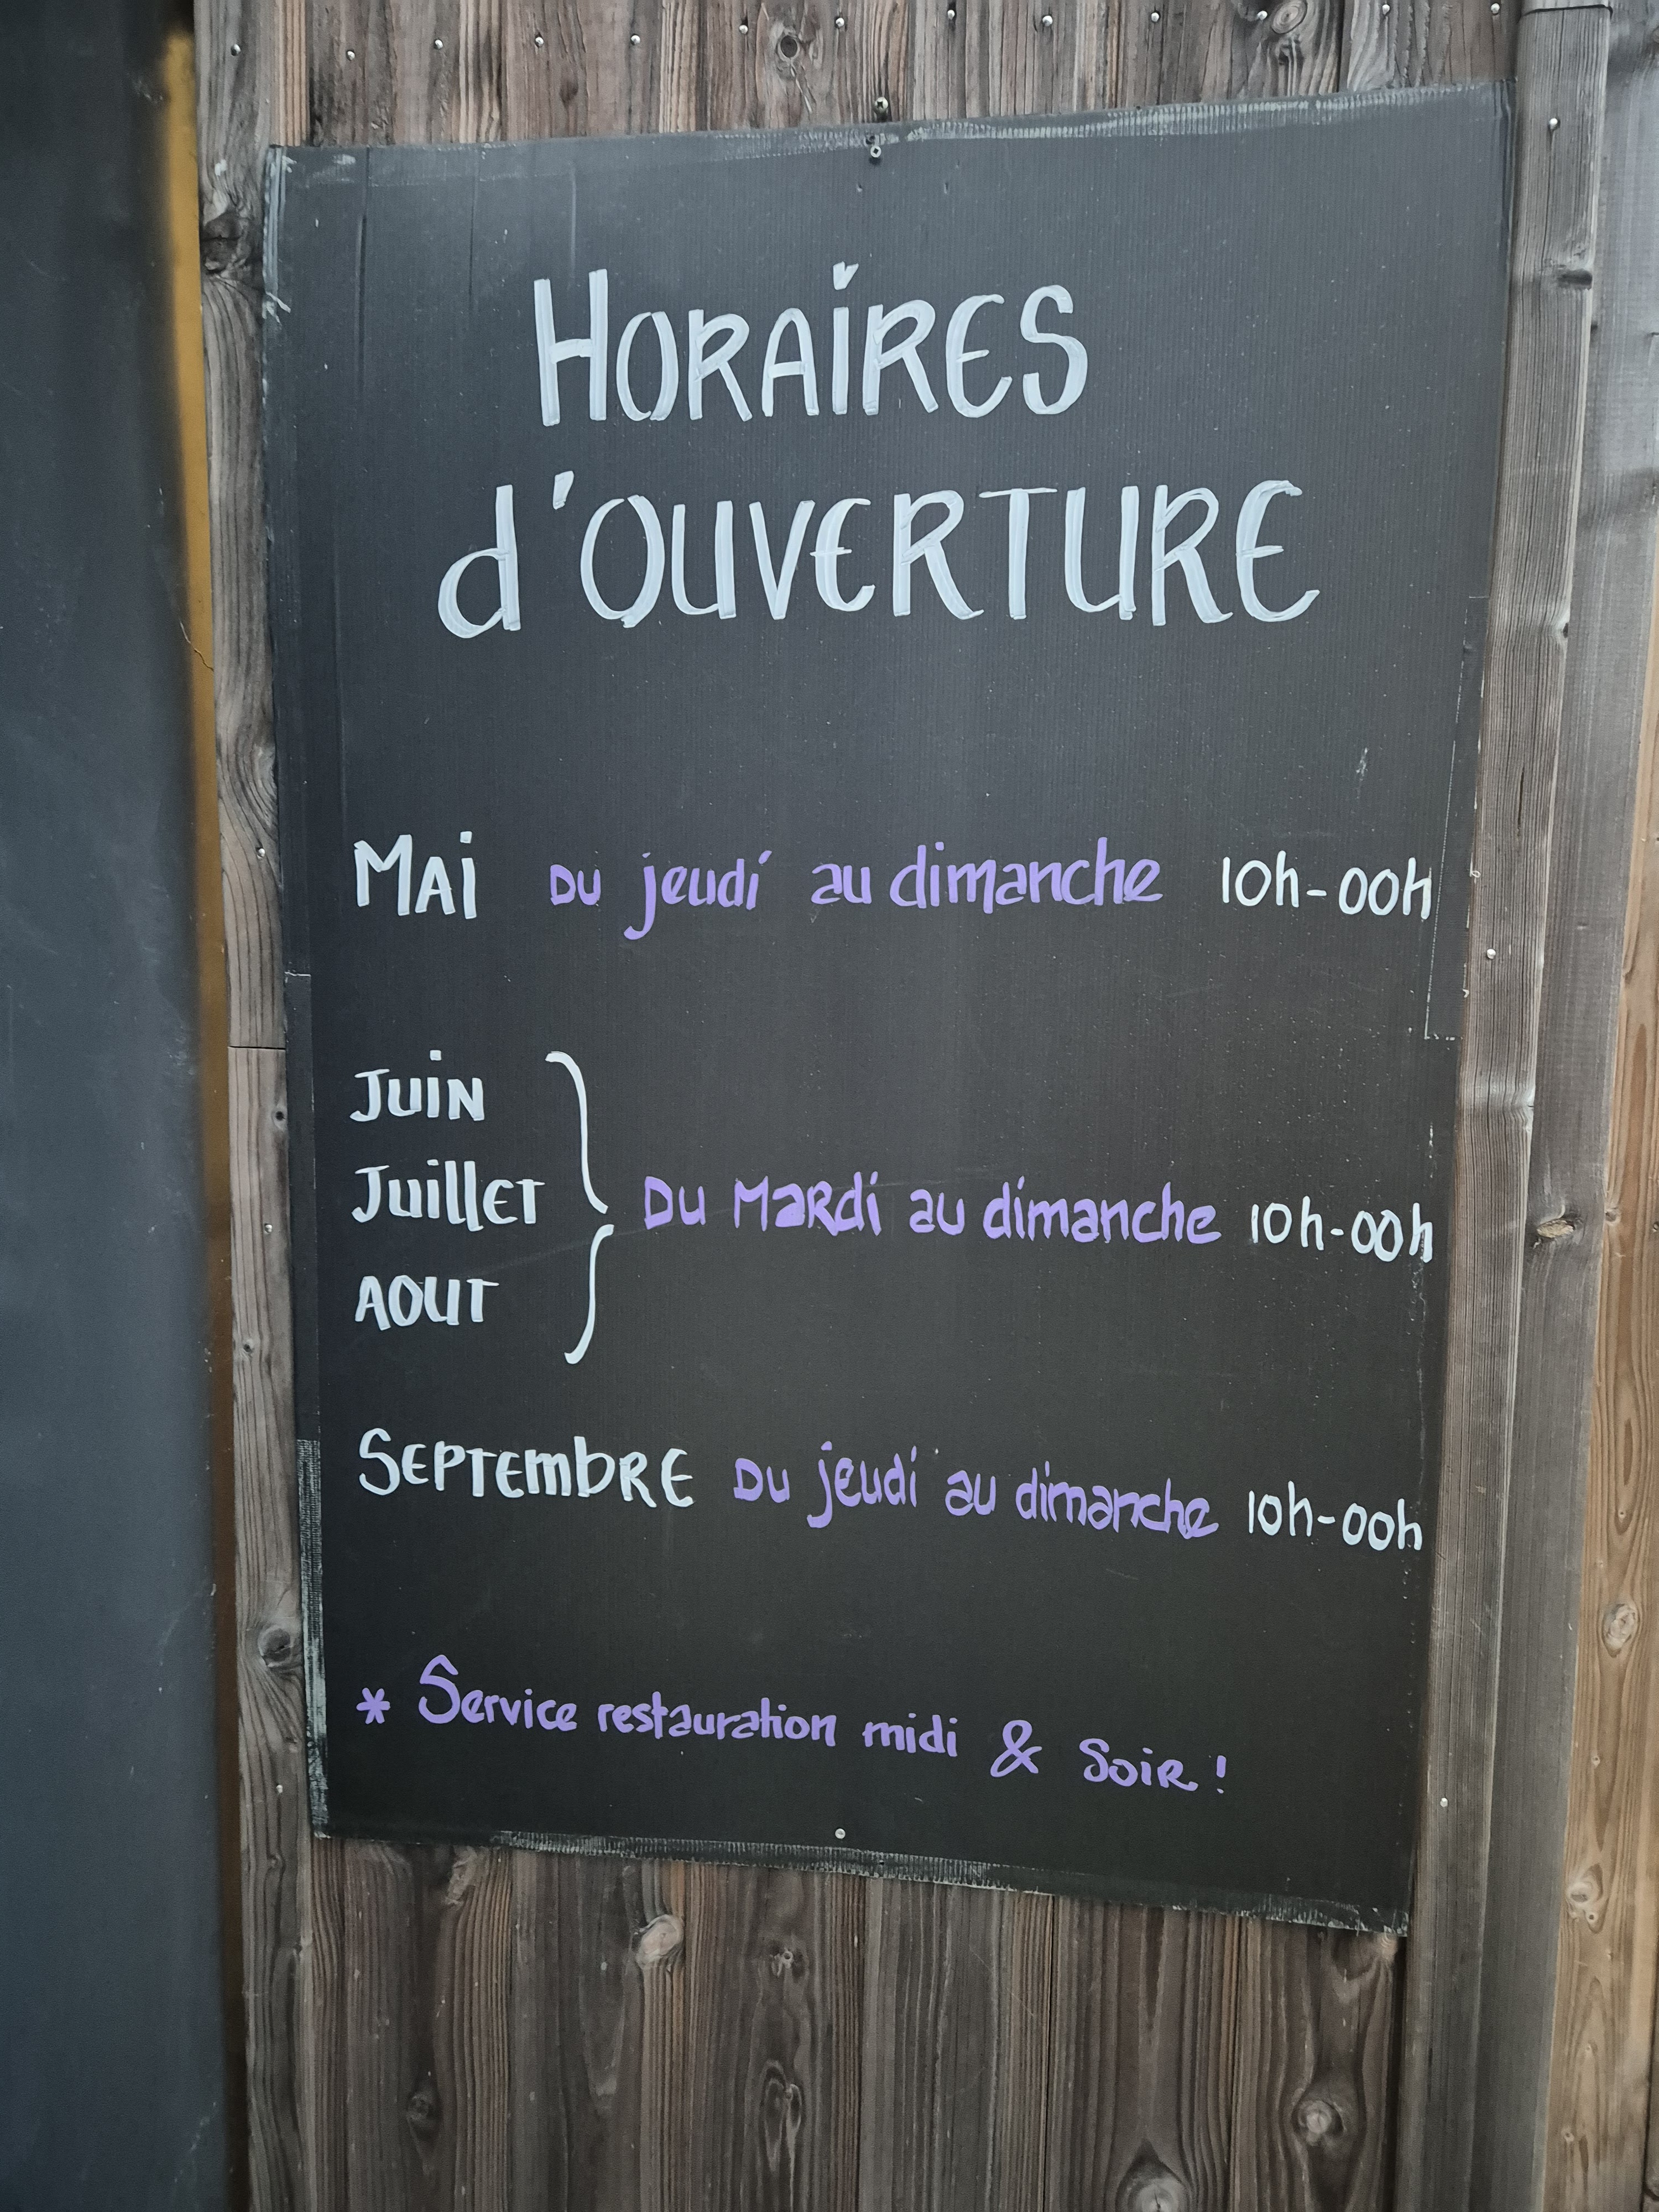 HORAIRES
d'OUVERTURE
MAI DU jeudi au dimanche 10h-00h
JUIN
JuillET
AOUT
DU MARdi au dimanche 10h-00h
SEPTEmbRE DU jeudi au dimanche 10h-00h
* Service restauration midi & Soir !